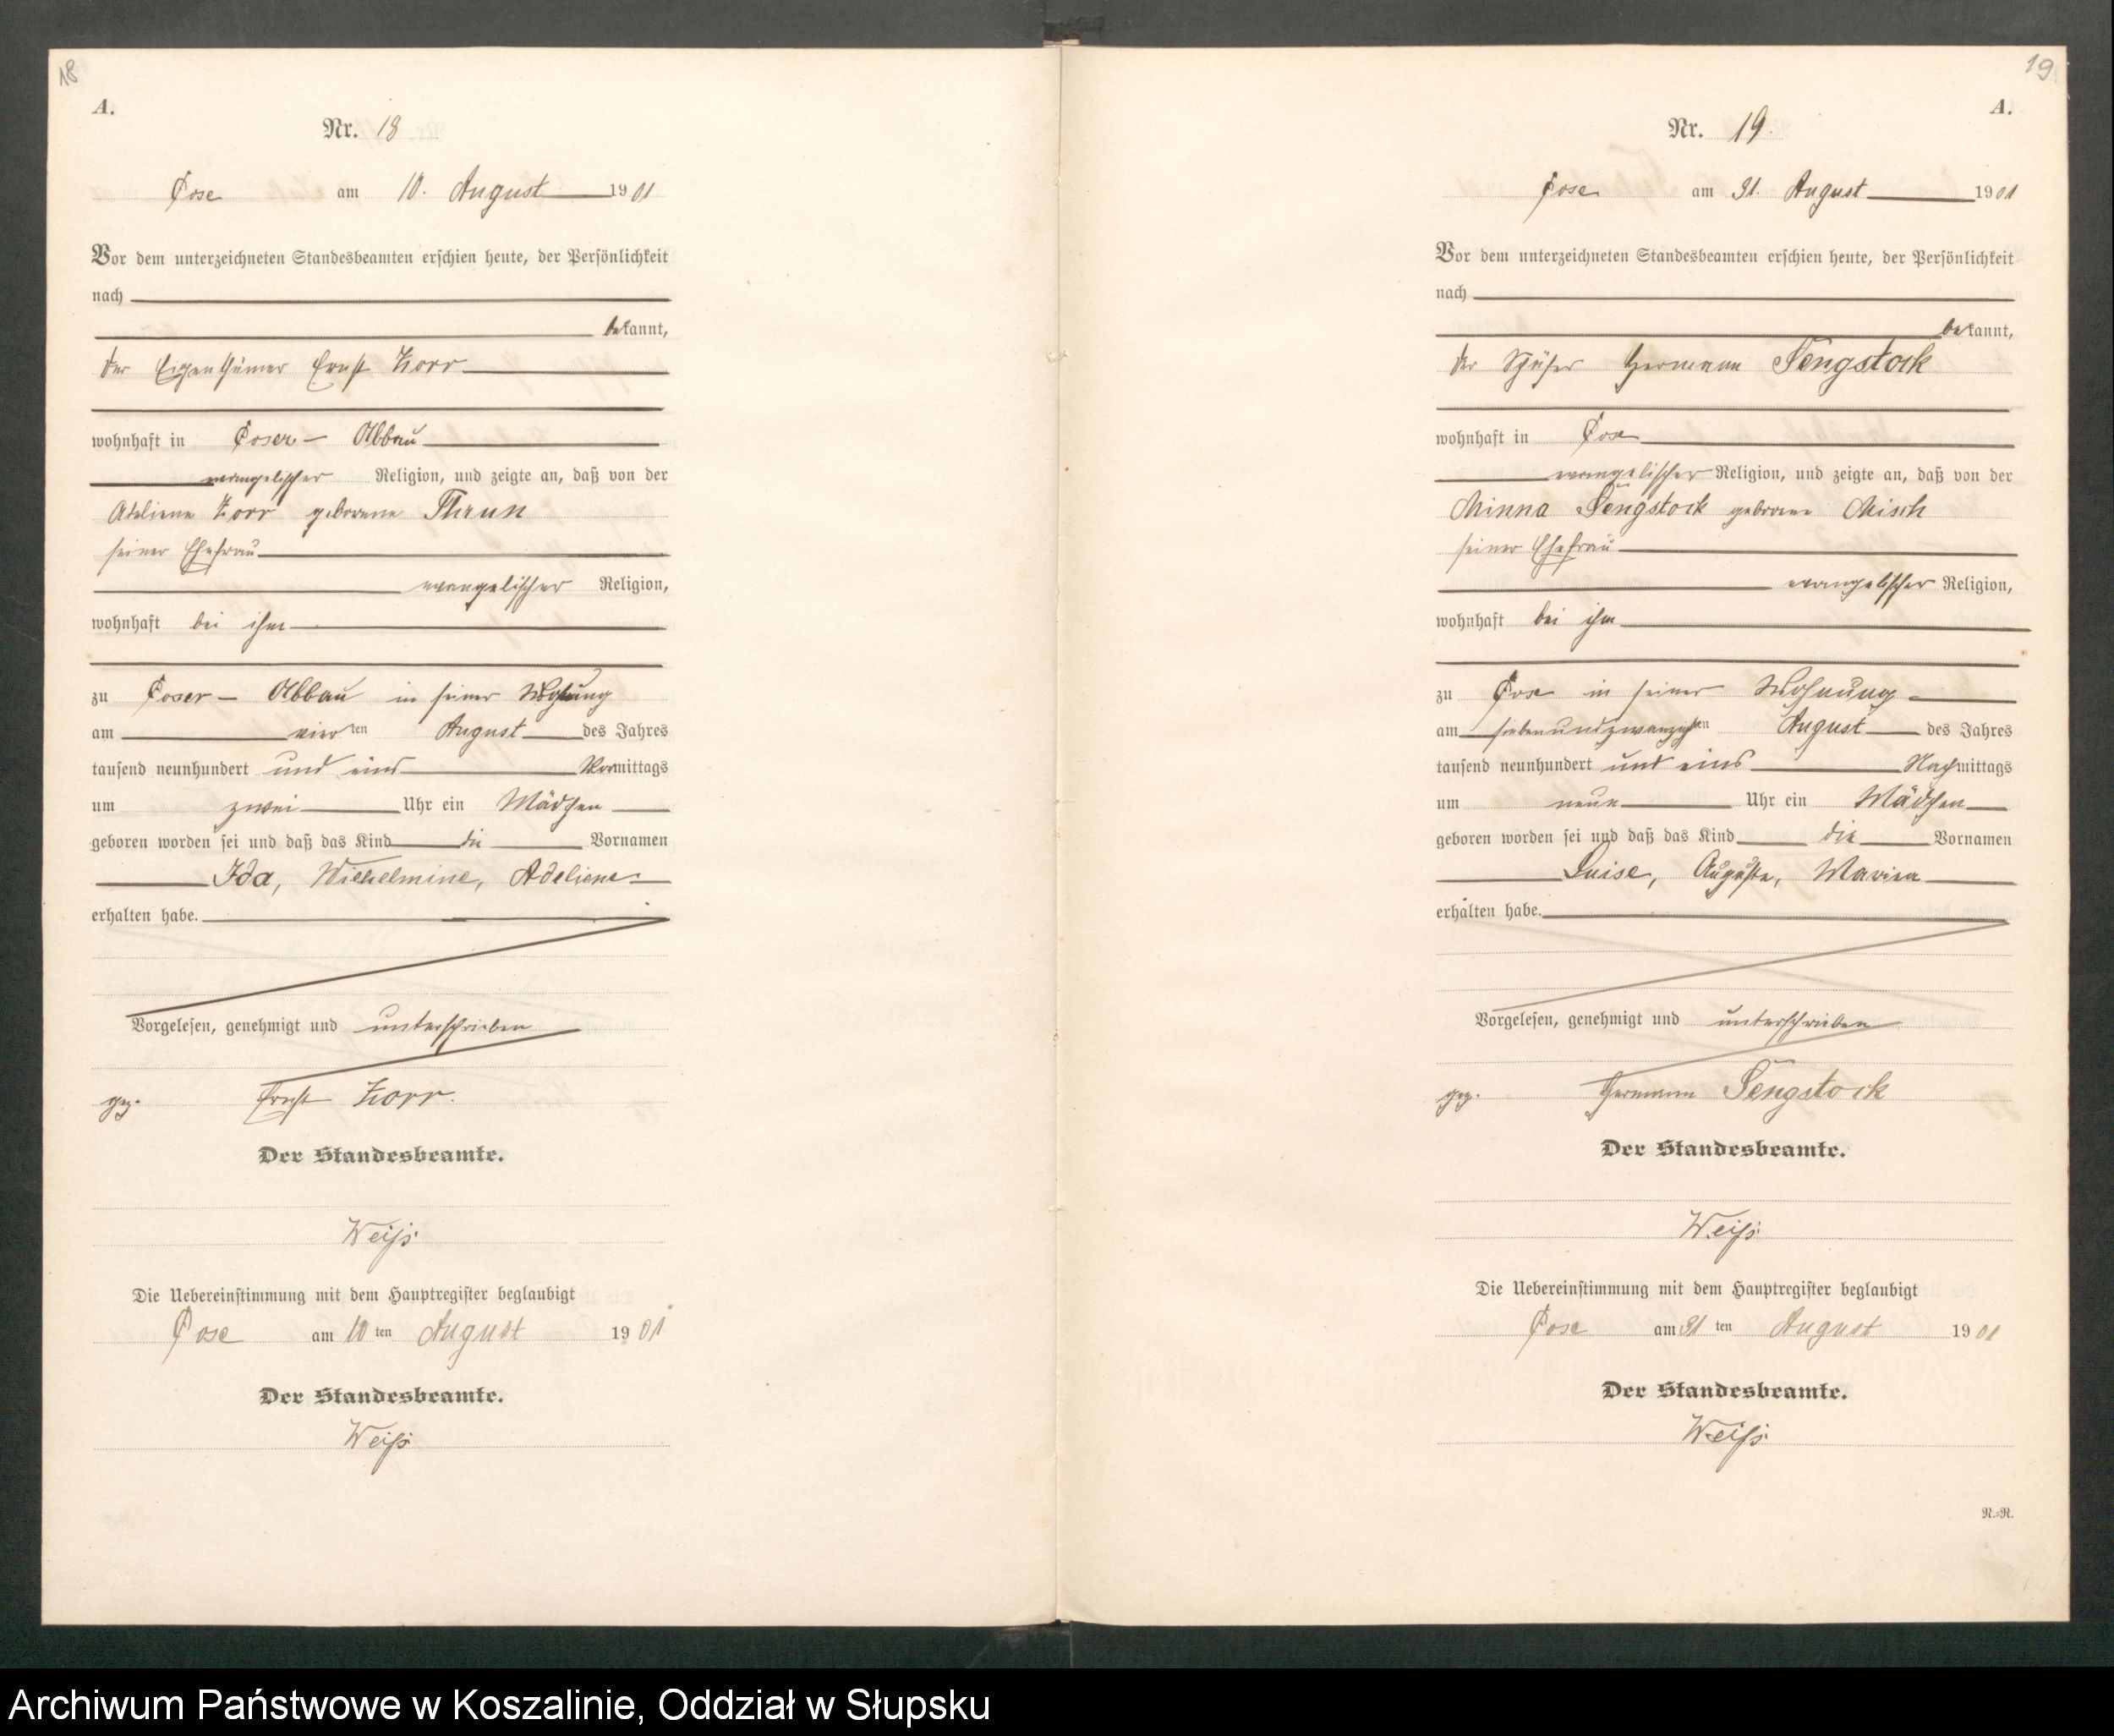 18
A.
Nr. 18
Pose am 10. August 1901
Vor dem unterzeichneten Standesbeamten erschien heute, der Persönlichkeit
nach
bekannt,
der Eigenthümer Ernst Zorr
wohnhaft in Poser - Abbau
evangelischer Religion, und zeigte an, daß von der
Adeliene Zorr geborene Thrun
seiner Ehefrau
evangelischer Religion,
wohnhaft bei ihm
zu Poser - Abbau in seiner Wohnung
am vierten August des Jahres
tausend neunhundert und eins Vormittags
um zwei Uhr ein Mädchen
geboren worden sei und daß das Kind die Vornamen
Ida, Wilhelmine, Adeliene
erhalten habe.
Vorgelesen, genehmigt und unterschrieben
gez. Ernst Zorr.
Der Standesbeamte.
Weiß
Die Uebereinstimmung mit dem Hauptregister beglaubigt
Pose am 10 ten August 1901
Der Standesbeamte.
Weiß
19
A.
Nr. 19.
Pose am 31. August 1901
Vor dem unterzeichneten Standesbeamten erschien heute, der Persönlichkeit
nach
bekannt,
der Schäfer Hermann Sengstock
wohnhaft in Pose
evangelischer Religion, und zeigte an, daß von der
Minna Sengstock geborene Misch
seiner Ehefrau
evangelischer Religion,
wohnhaft bei ihm
zu Pose in seiner Wohnung
am siebenundzwanzigsten August des Jahres
tausend neunhundert und eins Nachmittags
um neun Uhr ein Mädchen
geboren worden sei und daß das Kind die Vornamen
Luise, Auguste, Marie
erhalten habe.
Vorgelesen, genehmigt und unterschrieben
gez. Hermann Sengstock
Der Standesbeamte.
Weiß
Die Uebereinstimmung mit dem Hauptregister beglaubigt
Pose am 31 ten August 1901
Der Standesbeamte.
Weiß
N.=N.
Archiwum Państwowe w Koszalinie, Oddział w Słupsku